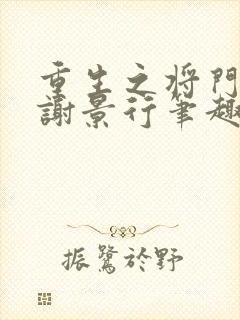 重生之将門
謝景行笔趣
振鷺於野